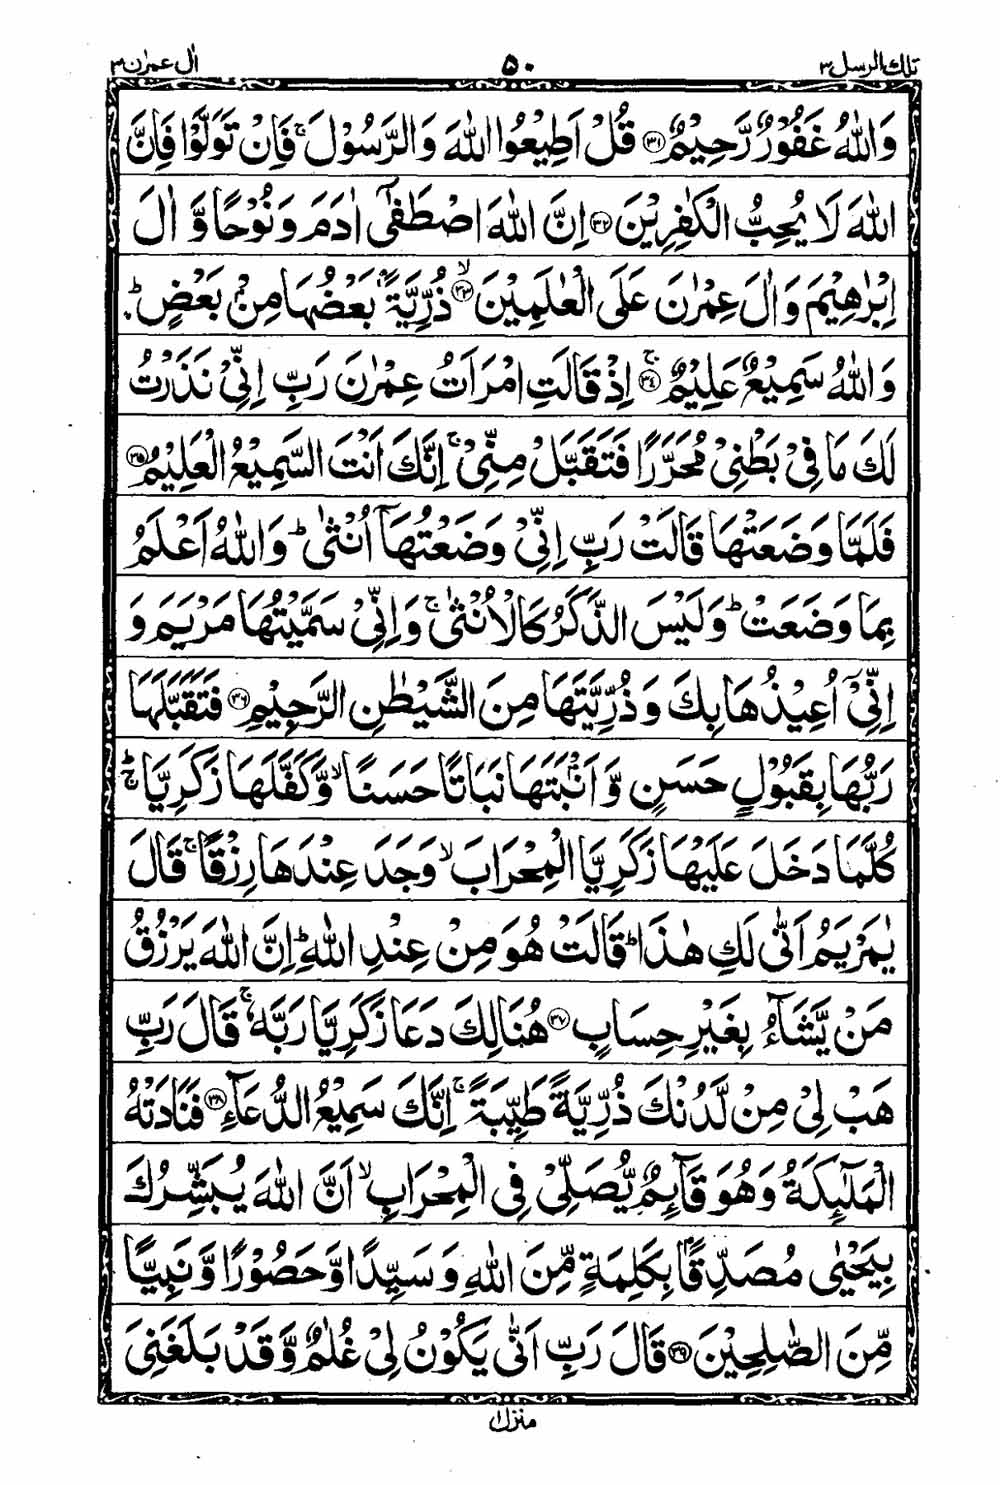 تلك الرسل ٣ ٥٠ اٰل عمرٰن ٣
وَاللّٰهُ غَفُوْرٌ رَّحِيْمٌ ﴿٣١﴾ قُلْ اَطِيْعُوا اللّٰهَ وَالرَّسُوْلَ ۚ فَاِنْ تَوَلَّوْا فَاِنَّ
اللّٰهَ لَا يُحِبُّ الْكٰفِرِيْنَ ﴿٣٢﴾ اِنَّ اللّٰهَ اصْطَفٰٓى اٰدَمَ وَنُوْحًا وَّ اٰلَ
اِبْرٰهِيْمَ وَاٰلَ عِمْرٰنَ عَلَى الْعٰلَمِيْنَ ﴿٣٣﴾ۙ ذُرِّيَّةًۢ بَعْضُهَا مِنْۢ بَعْضٍ ؕ
وَاللّٰهُ سَمِيْعٌ عَلِيْمٌ ﴿٣٤﴾ۚ اِذْ قَالَتِ امْرَاَتُ عِمْرٰنَ رَبِّ اِنِّيْ نَذَرْتُ
لَكَ مَا فِيْ بَطْنِيْ مُحَرَّرًا فَتَقَبَّلْ مِنِّيْ ۚ اِنَّكَ اَنْتَ السَّمِيْعُ الْعَلِيْمُ ﴿٣٥﴾
فَلَمَّا وَضَعَتْهَا قَالَتْ رَبِّ اِنِّيْ وَضَعْتُهَاۤ اُنْثٰى ؕ وَاللّٰهُ اَعْلَمُ
بِمَا وَضَعَتْ ؕ وَلَيْسَ الذَّكَرُ كَالْاُنْثٰى ۚ وَاِنِّيْ سَمَّيْتُهَا مَرْيَمَ وَ
اِنِّيْۤ اُعِيْذُهَا بِكَ وَذُرِّيَّتَهَا مِنَ الشَّيْطٰنِ الرَّجِيْمِ ﴿٣٦﴾ فَتَقَبَّلَهَا
رَبُّهَا بِقَبُوْلٍ حَسَنٍ وَّاَنْۢبَتَهَا نَبَاتًا حَسَنًا ۙ وَّكَفَّلَهَا زَكَرِيَّا ؕۚ
كُلَّمَا دَخَلَ عَلَيْهَا زَكَرِيَّا الْمِحْرَابَ ۙ وَجَدَ عِنْدَهَا رِزْقًا ۚ قَالَ
يٰمَرْيَمُ اَنّٰى لَكِ هٰذَا ؕ قَالَتْ هُوَ مِنْ عِنْدِ اللّٰهِ ؕ اِنَّ اللّٰهَ يَرْزُقُ
مَنْ يَّشَآءُ بِغَيْرِ حِسَابٍ ﴿٣٧﴾ هُنَالِكَ دَعَا زَكَرِيَّا رَبَّهٗ ۚ قَالَ رَبِّ
هَبْ لِيْ مِنْ لَّدُنْكَ ذُرِّيَّةً طَيِّبَةً ۚ اِنَّكَ سَمِيْعُ الدُّعَآءِ ﴿٣٨﴾ فَنَادَتْهُ
الْمَلٰٓئِكَةُ وَهُوَ قَآئِمٌ يُّصَلِّيْ فِي الْمِحْرَابِ ۙ اَنَّ اللّٰهَ يُبَشِّرُكَ
بِيَحْيٰى مُصَدِّقًۢا بِكَلِمَةٍ مِّنَ اللّٰهِ وَسَيِّدًا وَّحَصُوْرًا وَّنَبِيًّا
مِّنَ الصّٰلِحِيْنَ ﴿٣٩﴾ قَالَ رَبِّ اَنّٰى يَكُوْنُ لِيْ غُلٰمٌ وَّقَدْ بَلَغَنِيَ
منزل ١